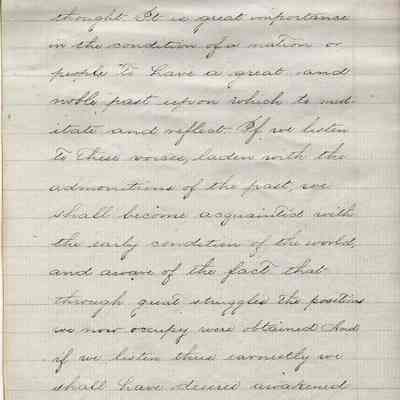 thought It is great importance
in the condition of a nation or
people to have a great and
noble past upon which to med-
itate and reflect. If we listen
to these voices, laden with the
admonitions of the past, we
shall become acquainted with
the early condition of the world,
and aware of the fact that
through great struggles the position
we now occupy were obtained And
if we listen thus earnestly we
shall have desires awakened